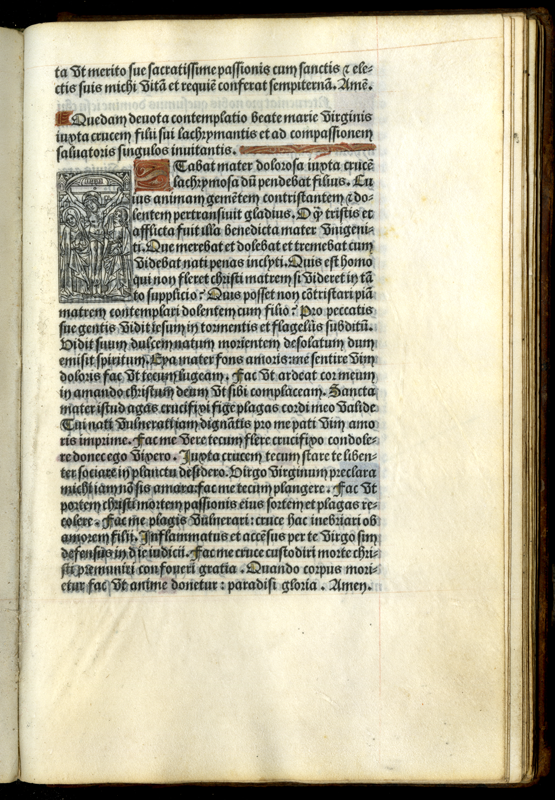 ta Vt merito sue sacratissime passionis cum sanctis ⁊ ele-
ctis suis michi Vitā et requiē conferat sempiternā. Amē.
Quedam deuota contemplatio beate marie Virginis
iuxta crucem filii sui lachrymantis et ad compassionem
saluatoris singulos inuitantis.
STabat mater dolorosa iuxta crucē
lachrymosa dū pendebat filius. Cu
ius animam gemētem contristantem ⁊ do-
lentem pertransiuit gladius. O ꝙ̄ tristis et
afflicta fuit illa benedicta mater Vnigeni-
ti. Que merebat et dolebat et tremebat cum
Videbat nati penas inclyti. Quis est homo
qui non fleret christi matrem si Videret in tā
to supplicio? Quis posset non cōtristari piā
matrem contemplari dolentem cum filio? Pro peccatis
sue gentis Vidit iesum in tormentis et flagellis subditū.
Vidit suum dulcem natum morientem desolatum dum
emisit spiritum. Eya mater fons amoris: me sentire Vim
doloris fac Vt tecum lugeam. Fac Vt ardeat cor meum
in amando christum deum Vt sibi complaceam. Sancta
mater istud agas crucifixi fige plagas cordi meo Valide
Tui nati Vulnerati jam dignatis pro me pati Vim amo
ris imprime. Fac me Vere tecum flere crucifixo condole-
re donec ego Vixero. Iuxta crucem tecum stare te liben-
ter sociare in planctu desidero. Virgo Virginum preclara
michi iam nō sis amara: fac me tecum plangere. Fac Vt
portem christi mortem passionis eius sortem et plagas re-
colere. Fac me plagis Vulnerari: cruce hac inebriari ob
amorem filii. Inflammatus et accēsus per te Virgo sim
defensus in die iudicii. Fac me cruce custodiri morte chri-
sti premuniri confoueri gratia. Quando corpus mori-
etur fac Vt anime donetur: paradisi gloria. Amen.